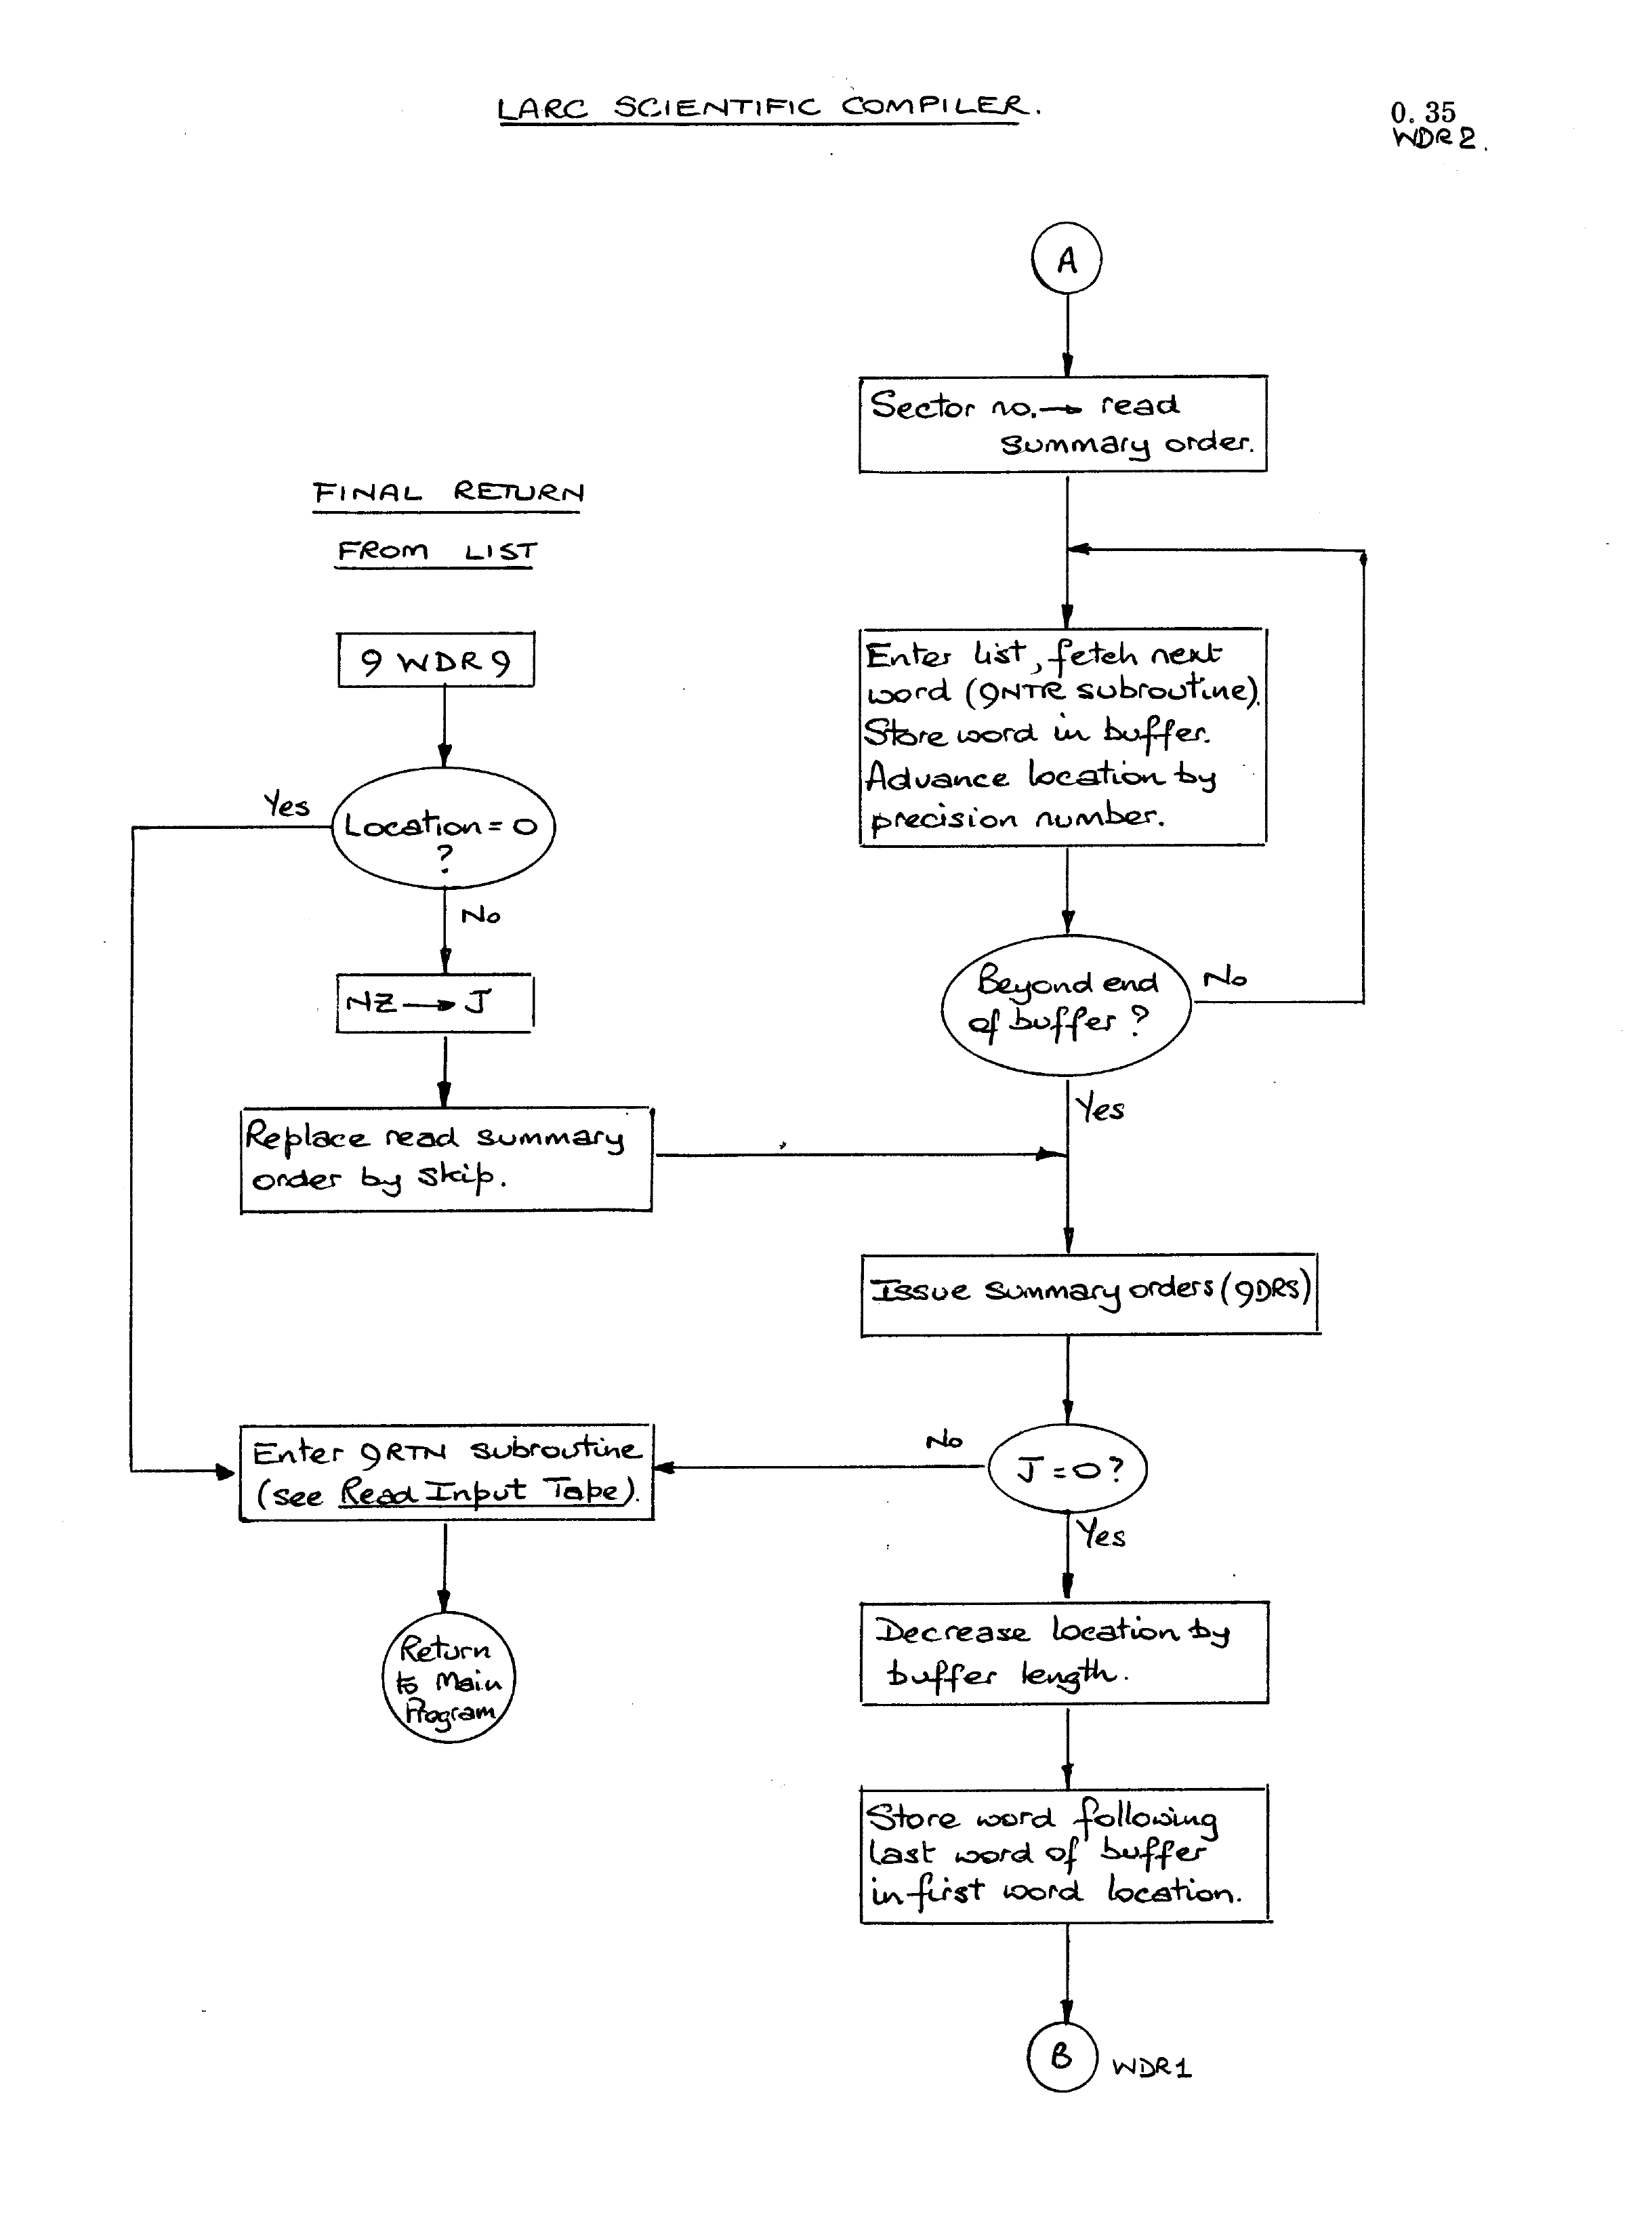 LARC SCIENTIFIC COMPILER.
0.35
WDR2.
A
Sector no. → read
summary order.
FINAL RETURN
FROM LIST
9WDR9
Enter list, fetch next
word (9NTR subroutine).
Store word in buffer.
Advance location by
precision number.
Yes
Location = 0
?
No
NZ → J
Beyond end
of buffer?
No
Yes
Replace read summary
order by skip.
Issue summary orders (9DRS)
Enter 9RTN subroutine
(see Read Input Tape).
No
J=0?
Yes
Return
to Main
Program
Decrease location by
buffer length.
Store word following
last word of buffer
in first word location.
B
WDR1